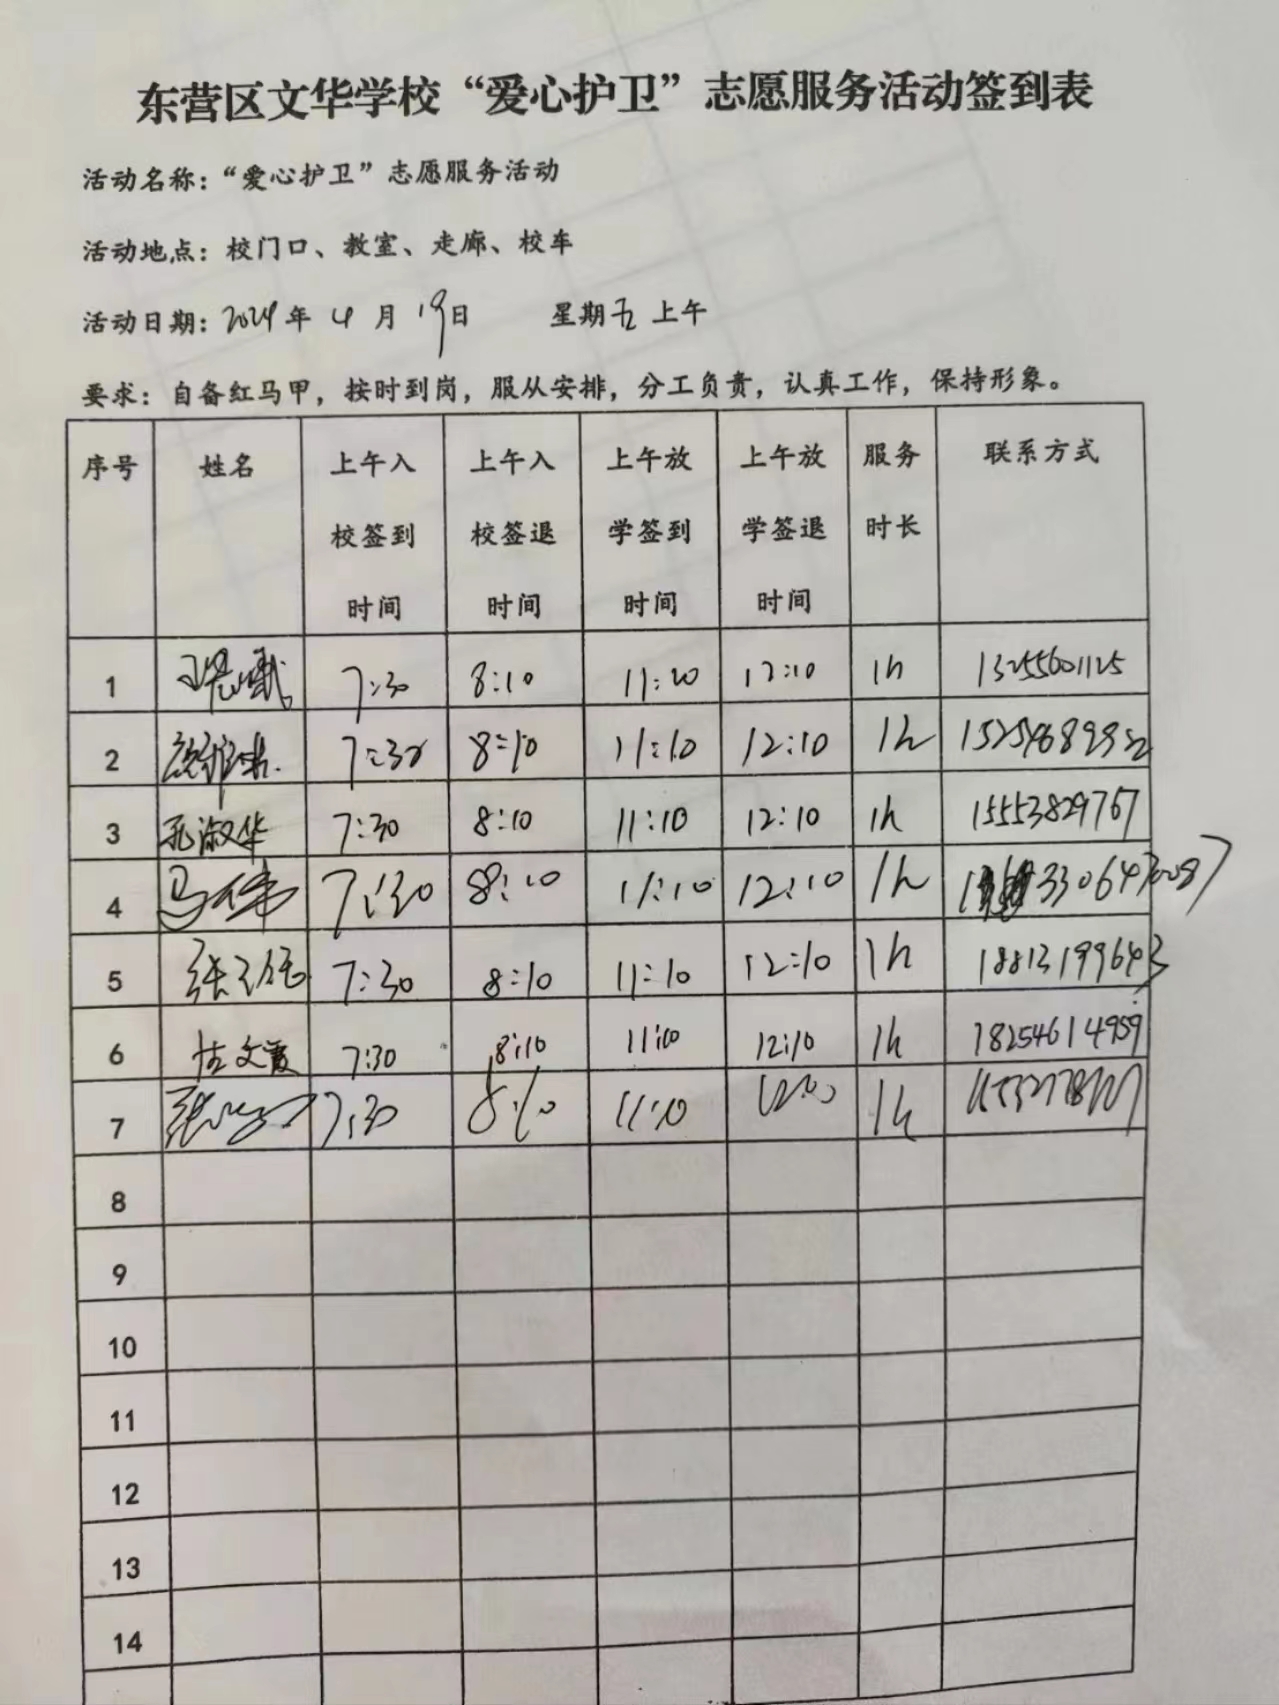 东营区文华学校“爱心护卫”志愿服务活动签到表
活动名称：“爱心护卫”志愿服务活动
活动地点：校门口、教室、走廊、校车
活动日期：2024年 4 月 19日 星期五 上午
要求：自备红马甲，按时到岗，服从安排，分工负责，认真工作，保持形象。
序号 姓名 上午入校签到时间 上午入校签退时间 上午放学签到时间 上午放学签退时间 服务时长 联系方式
1 7:30 8:10 11:20 12:10 1h 13255601125
2 7:30 8:10 11:10 12:10 1h
3 孔淑华 7:30 8:10 11:10 12:10 1h 15553829767
4 马伟 7:30 8:10 11:10 12:10 1h
5 7:30 8:10 11:10 12:10 1h 18813199643
6 文霞 7:30 8:10 11:10 12:10 1h 18254614959
7 7:30 8:10 11:10 1h
8
9
10
11
12
13
14